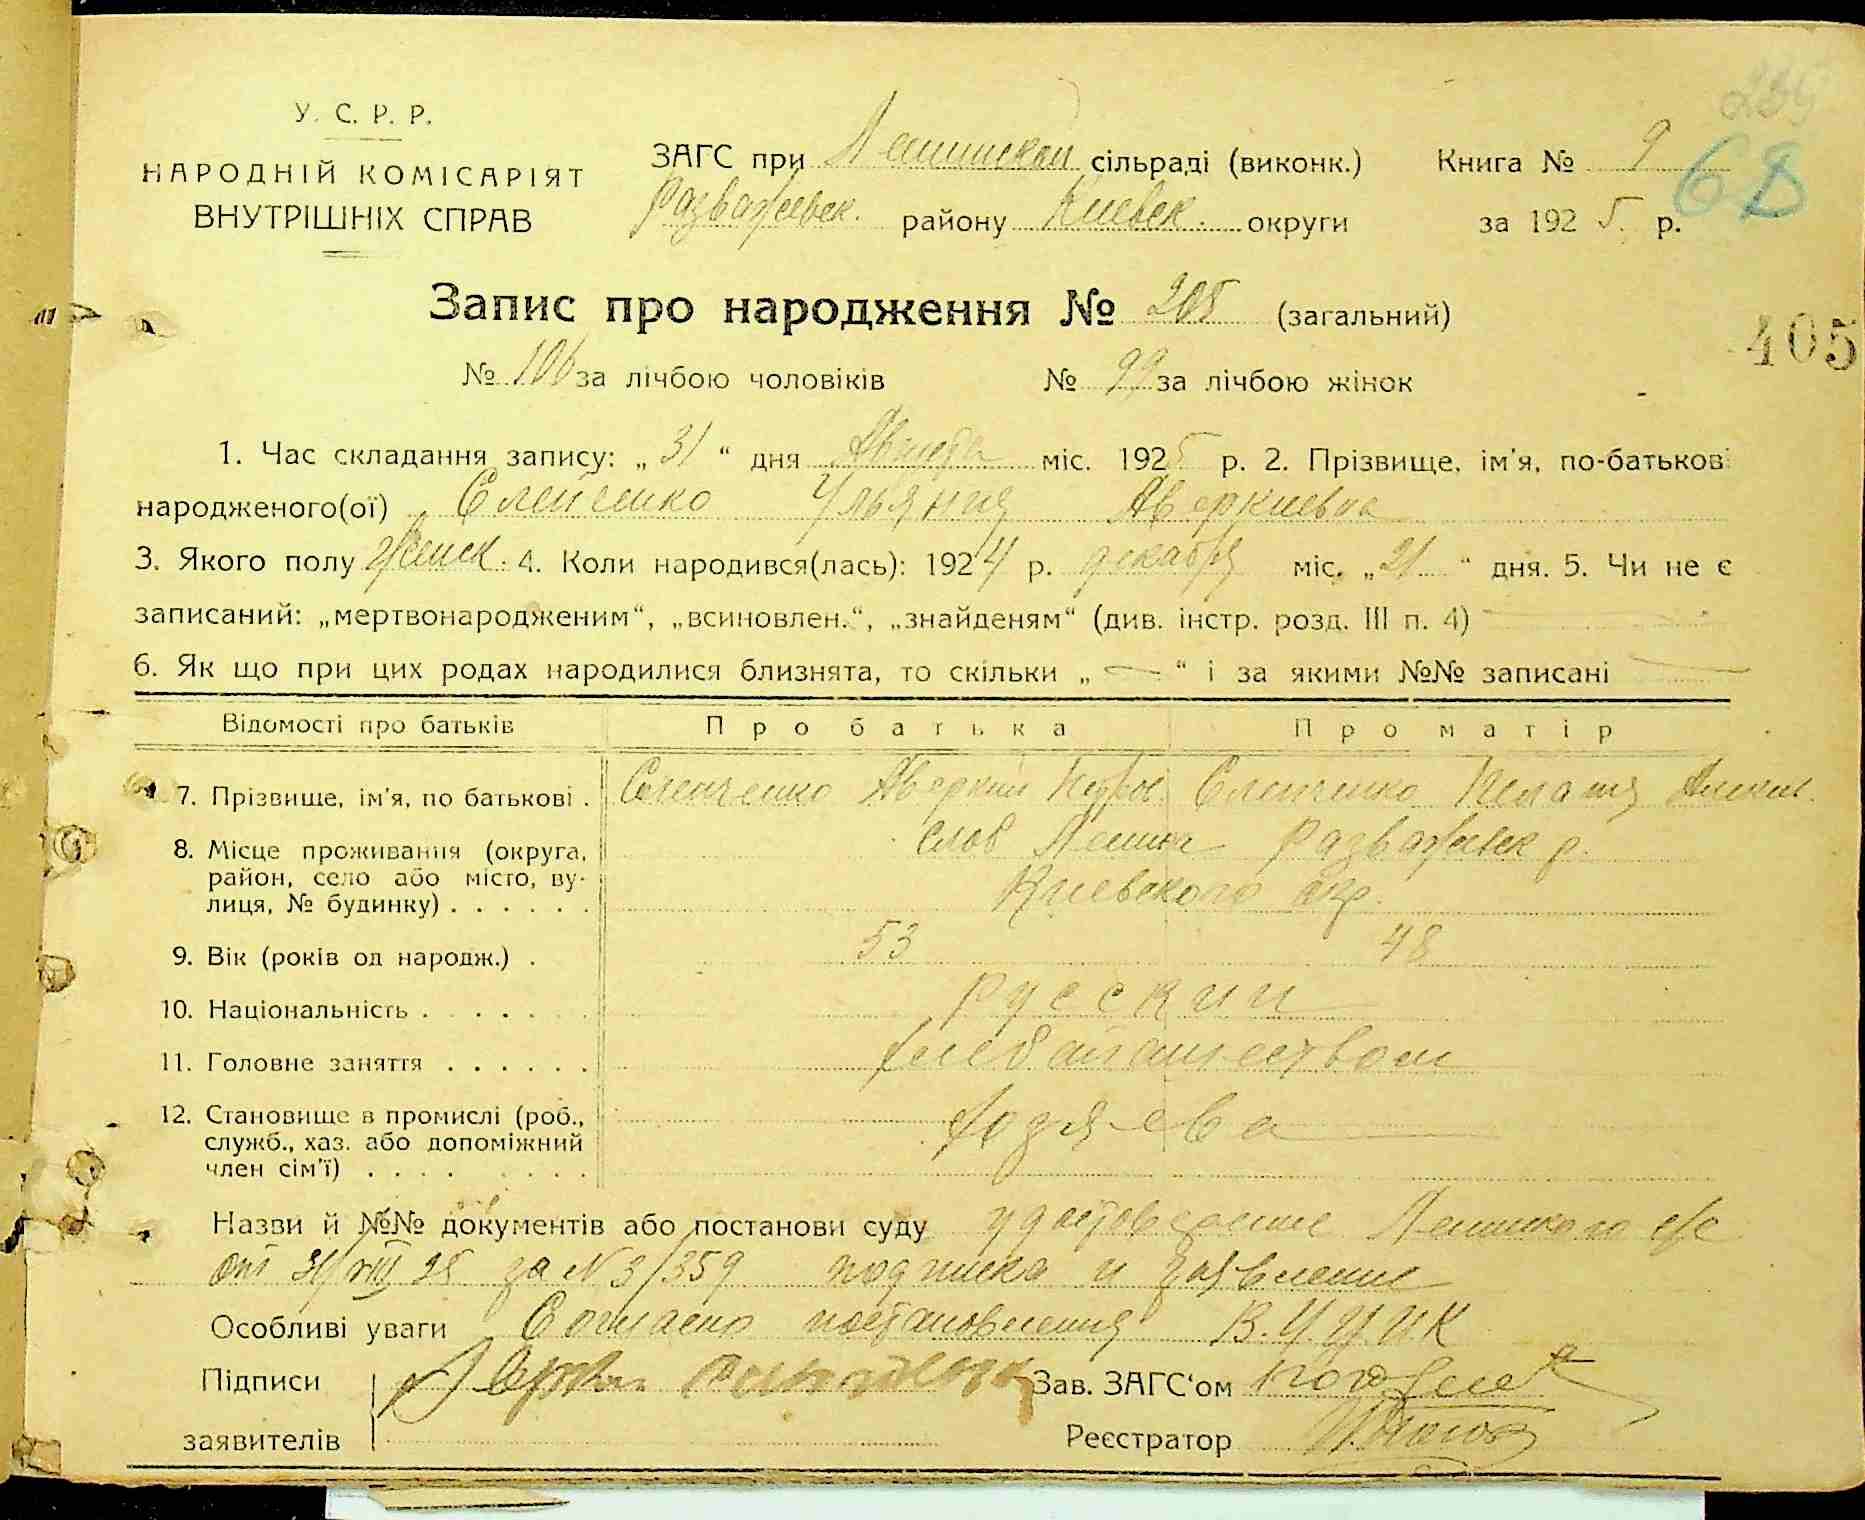 239
68
У. С. Р. Р.
НАРОДНІЙ КОМІСАРІЯТ
ВНУТРІШНІХ СПРАВ
ЗАГС при сільраді (виконк.) Книга № 9
Разважевск. району Киевск. округи за 1925 р.
Запис про народження № 205 (загальний)
405
№ 106 за лічбою чоловіків № 99 за лічбою жінок
1. Час складання запису: „31“ дня Августа міс. 1925 р. 2. Прізвище, ім'я, по-батькові
народженого(ої) Ульяния Аверкиевна
3. Якого полу Женск. 4. Коли народився(лась): 1924 р. декабря міс. „21“ дня. 5. Чи не є
записаний: „мертвонародженим“, „всиновлен.“, „знайденям“ (див. інстр. розд. III п. 4) —
6. Як що при цих родах народилися близнята, то скільки „—“ і за якими №№ записані —
Відомості про батьків Про батька Про матір
7. Прізвище, ім'я, по батькові . Аверкий
8. Місце проживання (округа, Разважевск р.
район, село або місто, ву- Киевского окр.
лиця, № будинку) . . . . . .
9. Вік (років од народж.) . 53 48
10. Національність . . . . . . . русский
11. Головне заняття . . . . . . хлебопашеством
12. Становище в промислі (роб., хозяева
служб., хаз. або допоміжний
член сім'ї) . . . . . . . . .
Назви й №№ документів або постанови суду удостоверение с/с
от 31/VIII 25 за N 3/359 подписка и заявление
Особливі уваги Согласно постановления В.У.Ц.И.К
Підписи Зав. ЗАГС'ом
заявителів Реєстратор